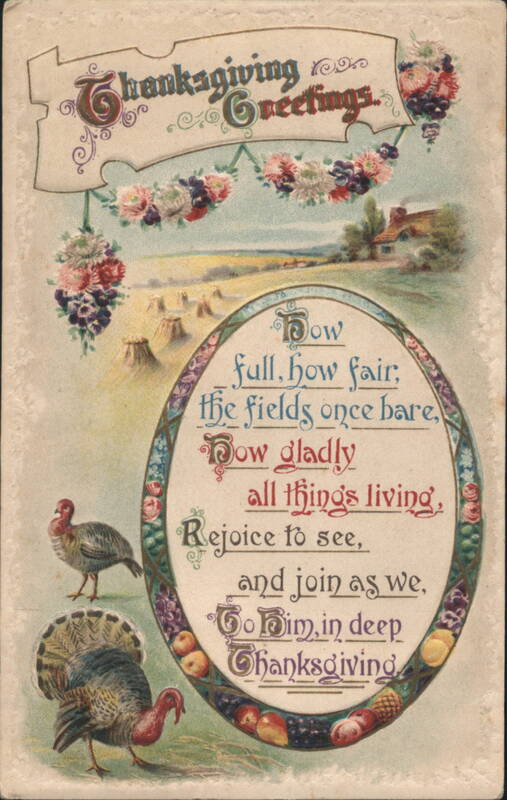 Thanksgiving
Greetings.
How
full, how fair,
the fields once bare,
How gladly
all things living,
Rejoice to see,
and join as we,
To Him, in deep
Thanksgiving